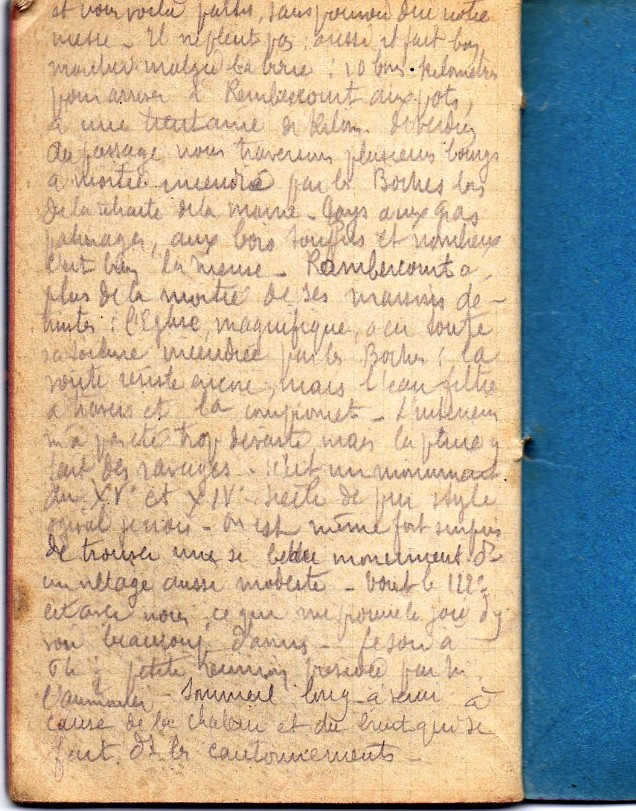 et nous voilà partis, sans pouvoir dire notre
messe - Il ne pleut pas, aussi il fait bon
marcher malgré la boue : 10 bons kilomètres
pour arriver à Rembercourt aux pots,
à une trentaine de kilom. de Verdun
Au passage nous traversons plusieurs bourgs
à moitié incendiés par les Boches lors
de la retraite de la marne - Pays aux gras
paturages, aux bois touffus et nombreux
c'est bien la meuse - Rambercourt a
plus de la moitié de ses maisons dé-
truites : l'Eglise, magnifique, a eu toute
sa toiture incendiée par les Boches ; la
voute résiste encore, mais l'eau filtre
à travers et la compromet - L'intérieur
n'a pas été trop dévasté mais la pluie y
fait des ravages - c'est un monument
du XV° et XIV° siècle de pur style
ogival - on est même fort surpris
de trouver une si belle monument ds
un village aussi modeste - Tout le 122°
est avec nous, ce qui me procure la joie d'y
voir beaucoup d'amis - Le soir à
6h - petite réunion présidée par M.
l'aumonier - Sommeil long à venir à
cause de la chaleur et du bruit qui se
fait ds les cantonnements -